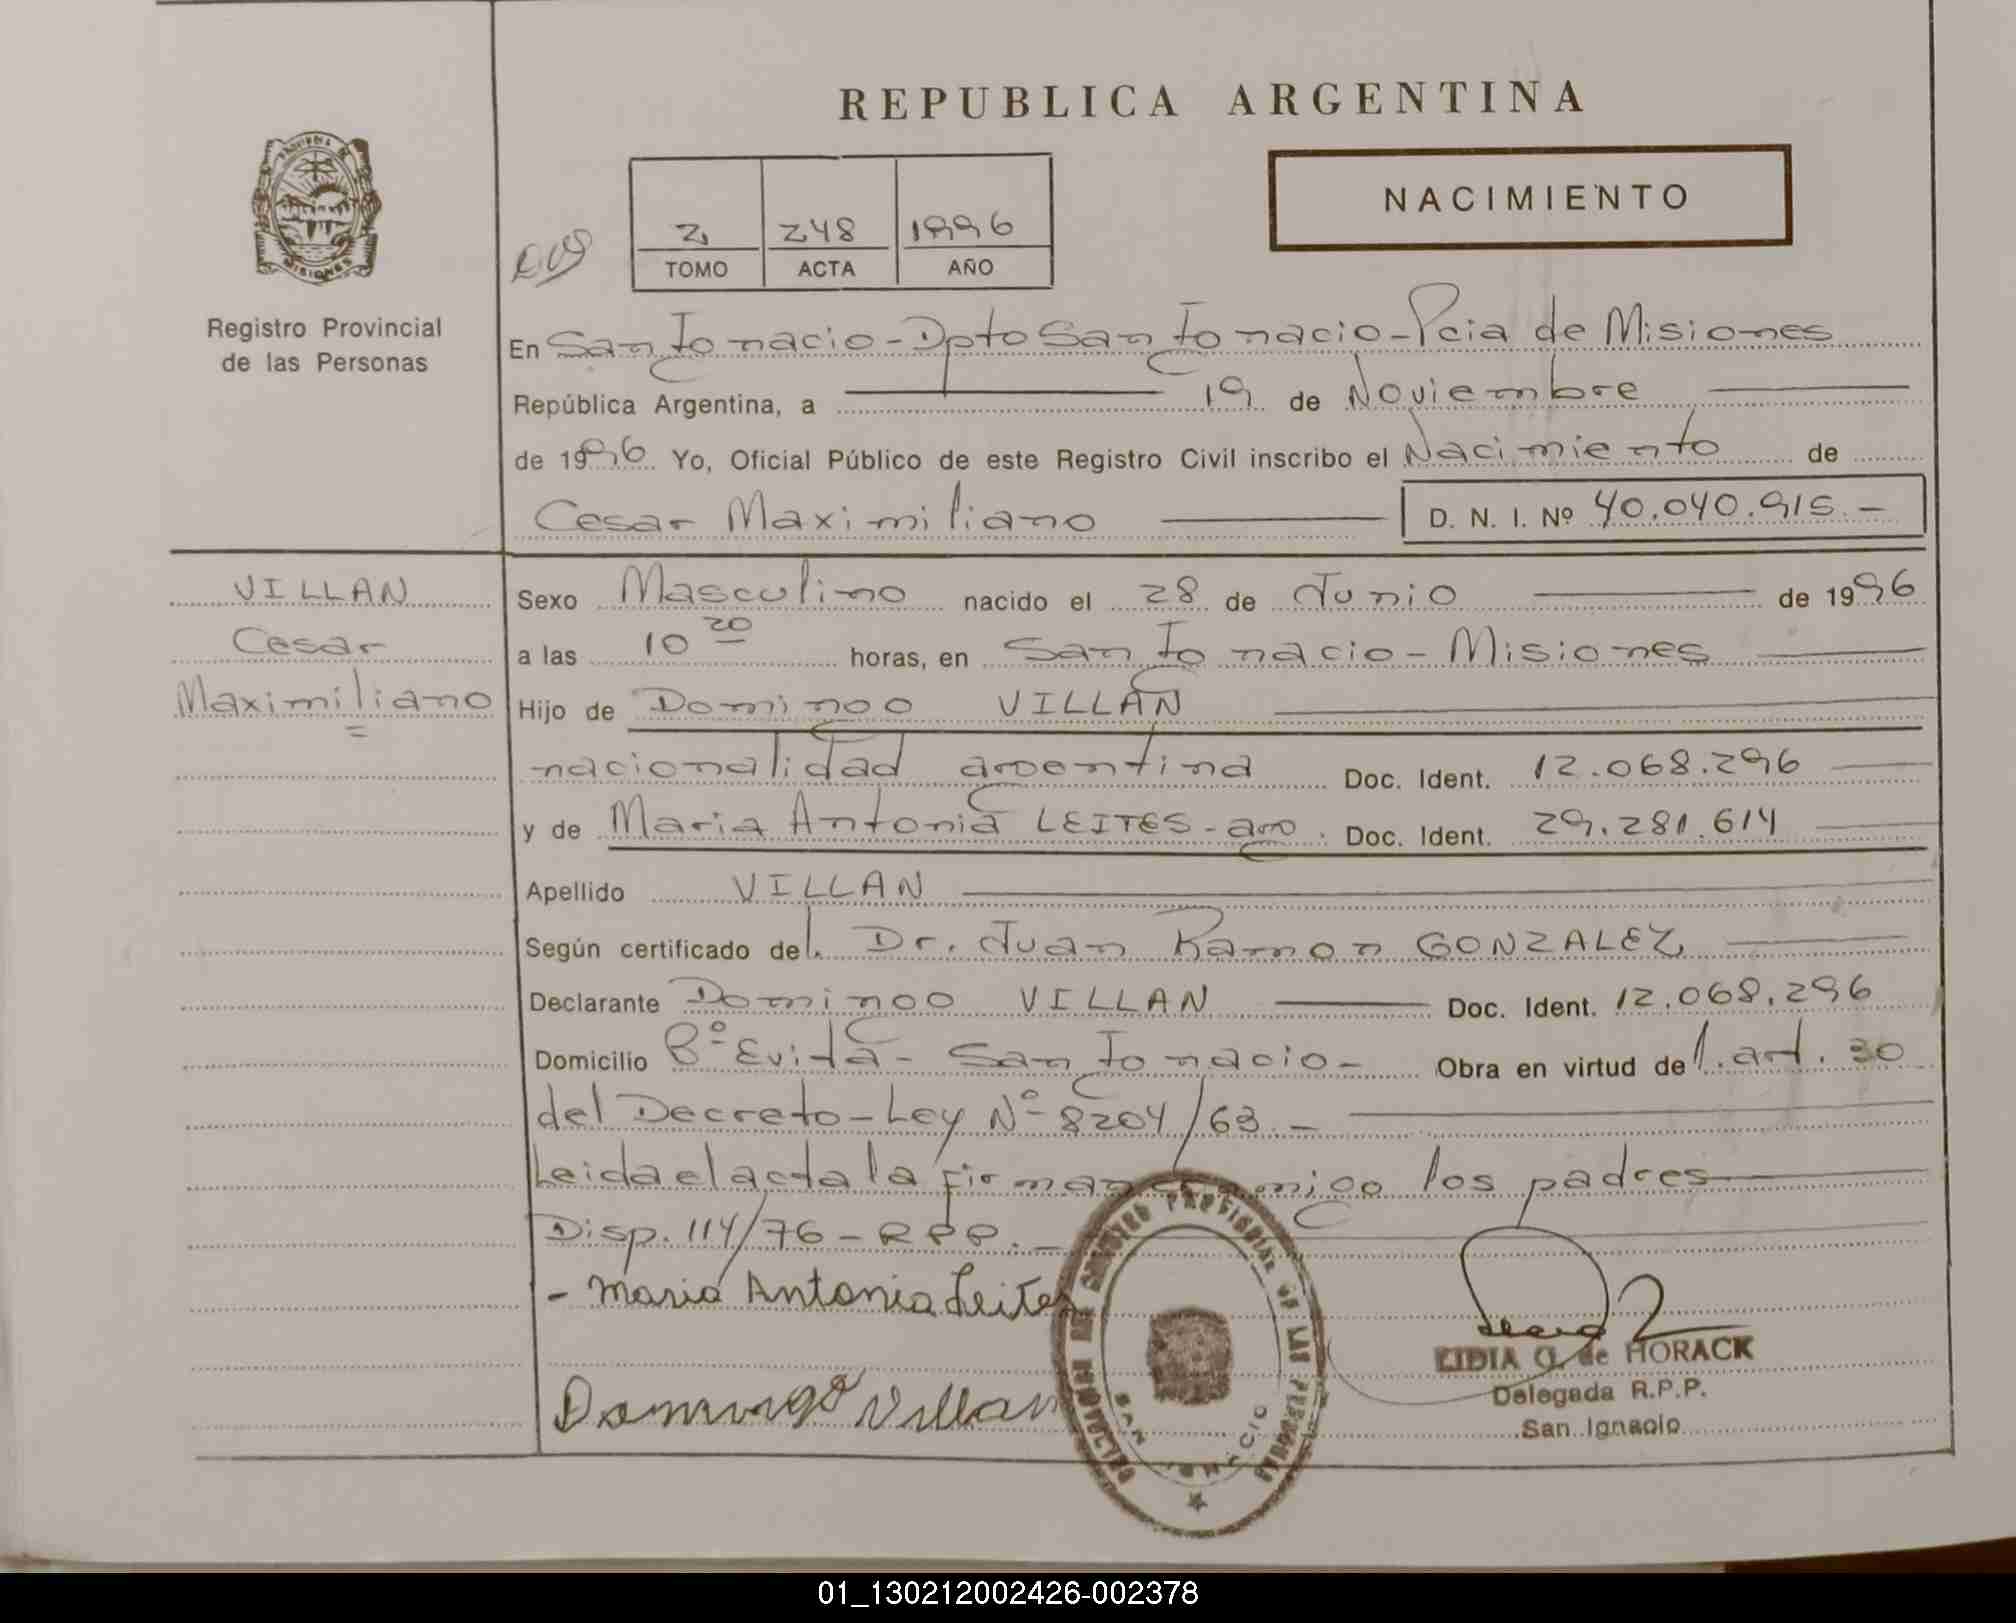 REPUBLICA ARGENTINA
NACIMIENTO
2 248 1996
TOMO ACTA AÑO
MISIONES
Registro Provincial
de las Personas
En San Ignacio - Dpto San Ignacio - Pcia de Misiones
República Argentina, a 19 de Noviembre
de 1996 Yo, Oficial Público de este Registro Civil inscribo el Nacimiento de
Cesar Maximiliano D. N. I. Nº 40.040.915.-
VILLAN
Cesar
Maximiliano
Sexo Masculino nacido el 28 de Junio de 1996
a las 10 20 horas, en San Ignacio - Misiones
Hijo de Domingo VILLAN
nacionalidad argentina Doc. Ident. 12.068.296
y de Maria Antonia LEITES - arg. Doc. Ident. 29.281.614
Apellido VILLAN
Según certificado del. Dr. Juan Ramon GONZALEZ
Declarante Domingo VILLAN Doc. Ident. 12.068.296
Domicilio Bº Evita - San Ignacio - Obra en virtud del. art. 30
del Decreto - Ley Nº 8204/63.-
Leida el acta la firman conmigo los padres
Disp. 114/76 - RPP.-
- Maria Antonia Leites
Domingo Villan
PROVINCIAL DE LAS PERSONAS
LIDIA O. de HORACK
Delegada R.P.P.
San Ignacio
01_130212002426-002378